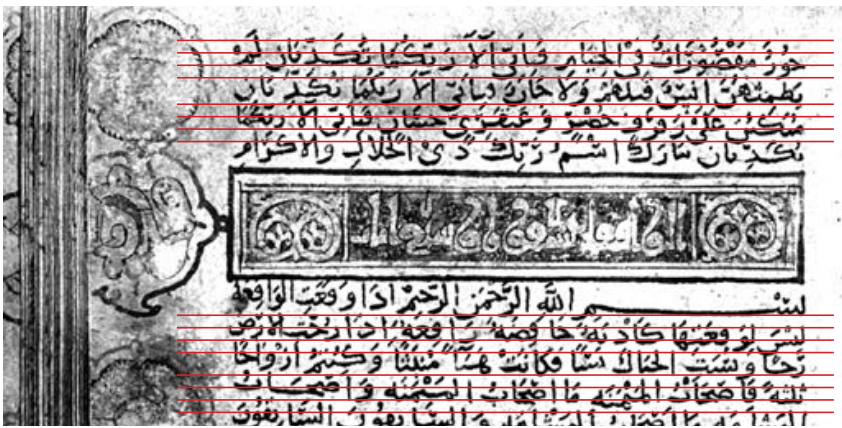 حور مقصورات في الخيام فباى الا ربكما تكذبان لم
يطمثهن انس قبلهم ولا جان فباى الا ربكما تكذبان
متكئين على رفرف خضر وعبقري حسان فباى الا ربكما
تكذبان تبارك اسم ربك ذي الجلال والاكرام
بسم الله الرحمن الرحيم اذا وقعت الواقعة
ليس لوقعتها كاذبة خافضة رافعة اذا رجت الارض
رجا وبست الجبال بسا فكانت هبا منبثا وكنتم ازواجا
ثلثة فاصحاب الميمنة ما اصحاب الميمنة واصحاب
المشامة ما اصحاب المشامة والسابقون السابقون